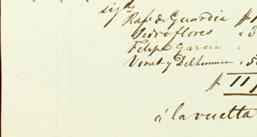 sigte
Rafl de Guardia $1
Pedro flores " 3
Felipe Garcia
Vinet y Delhumeau . 5
$ 111
á la vuetta